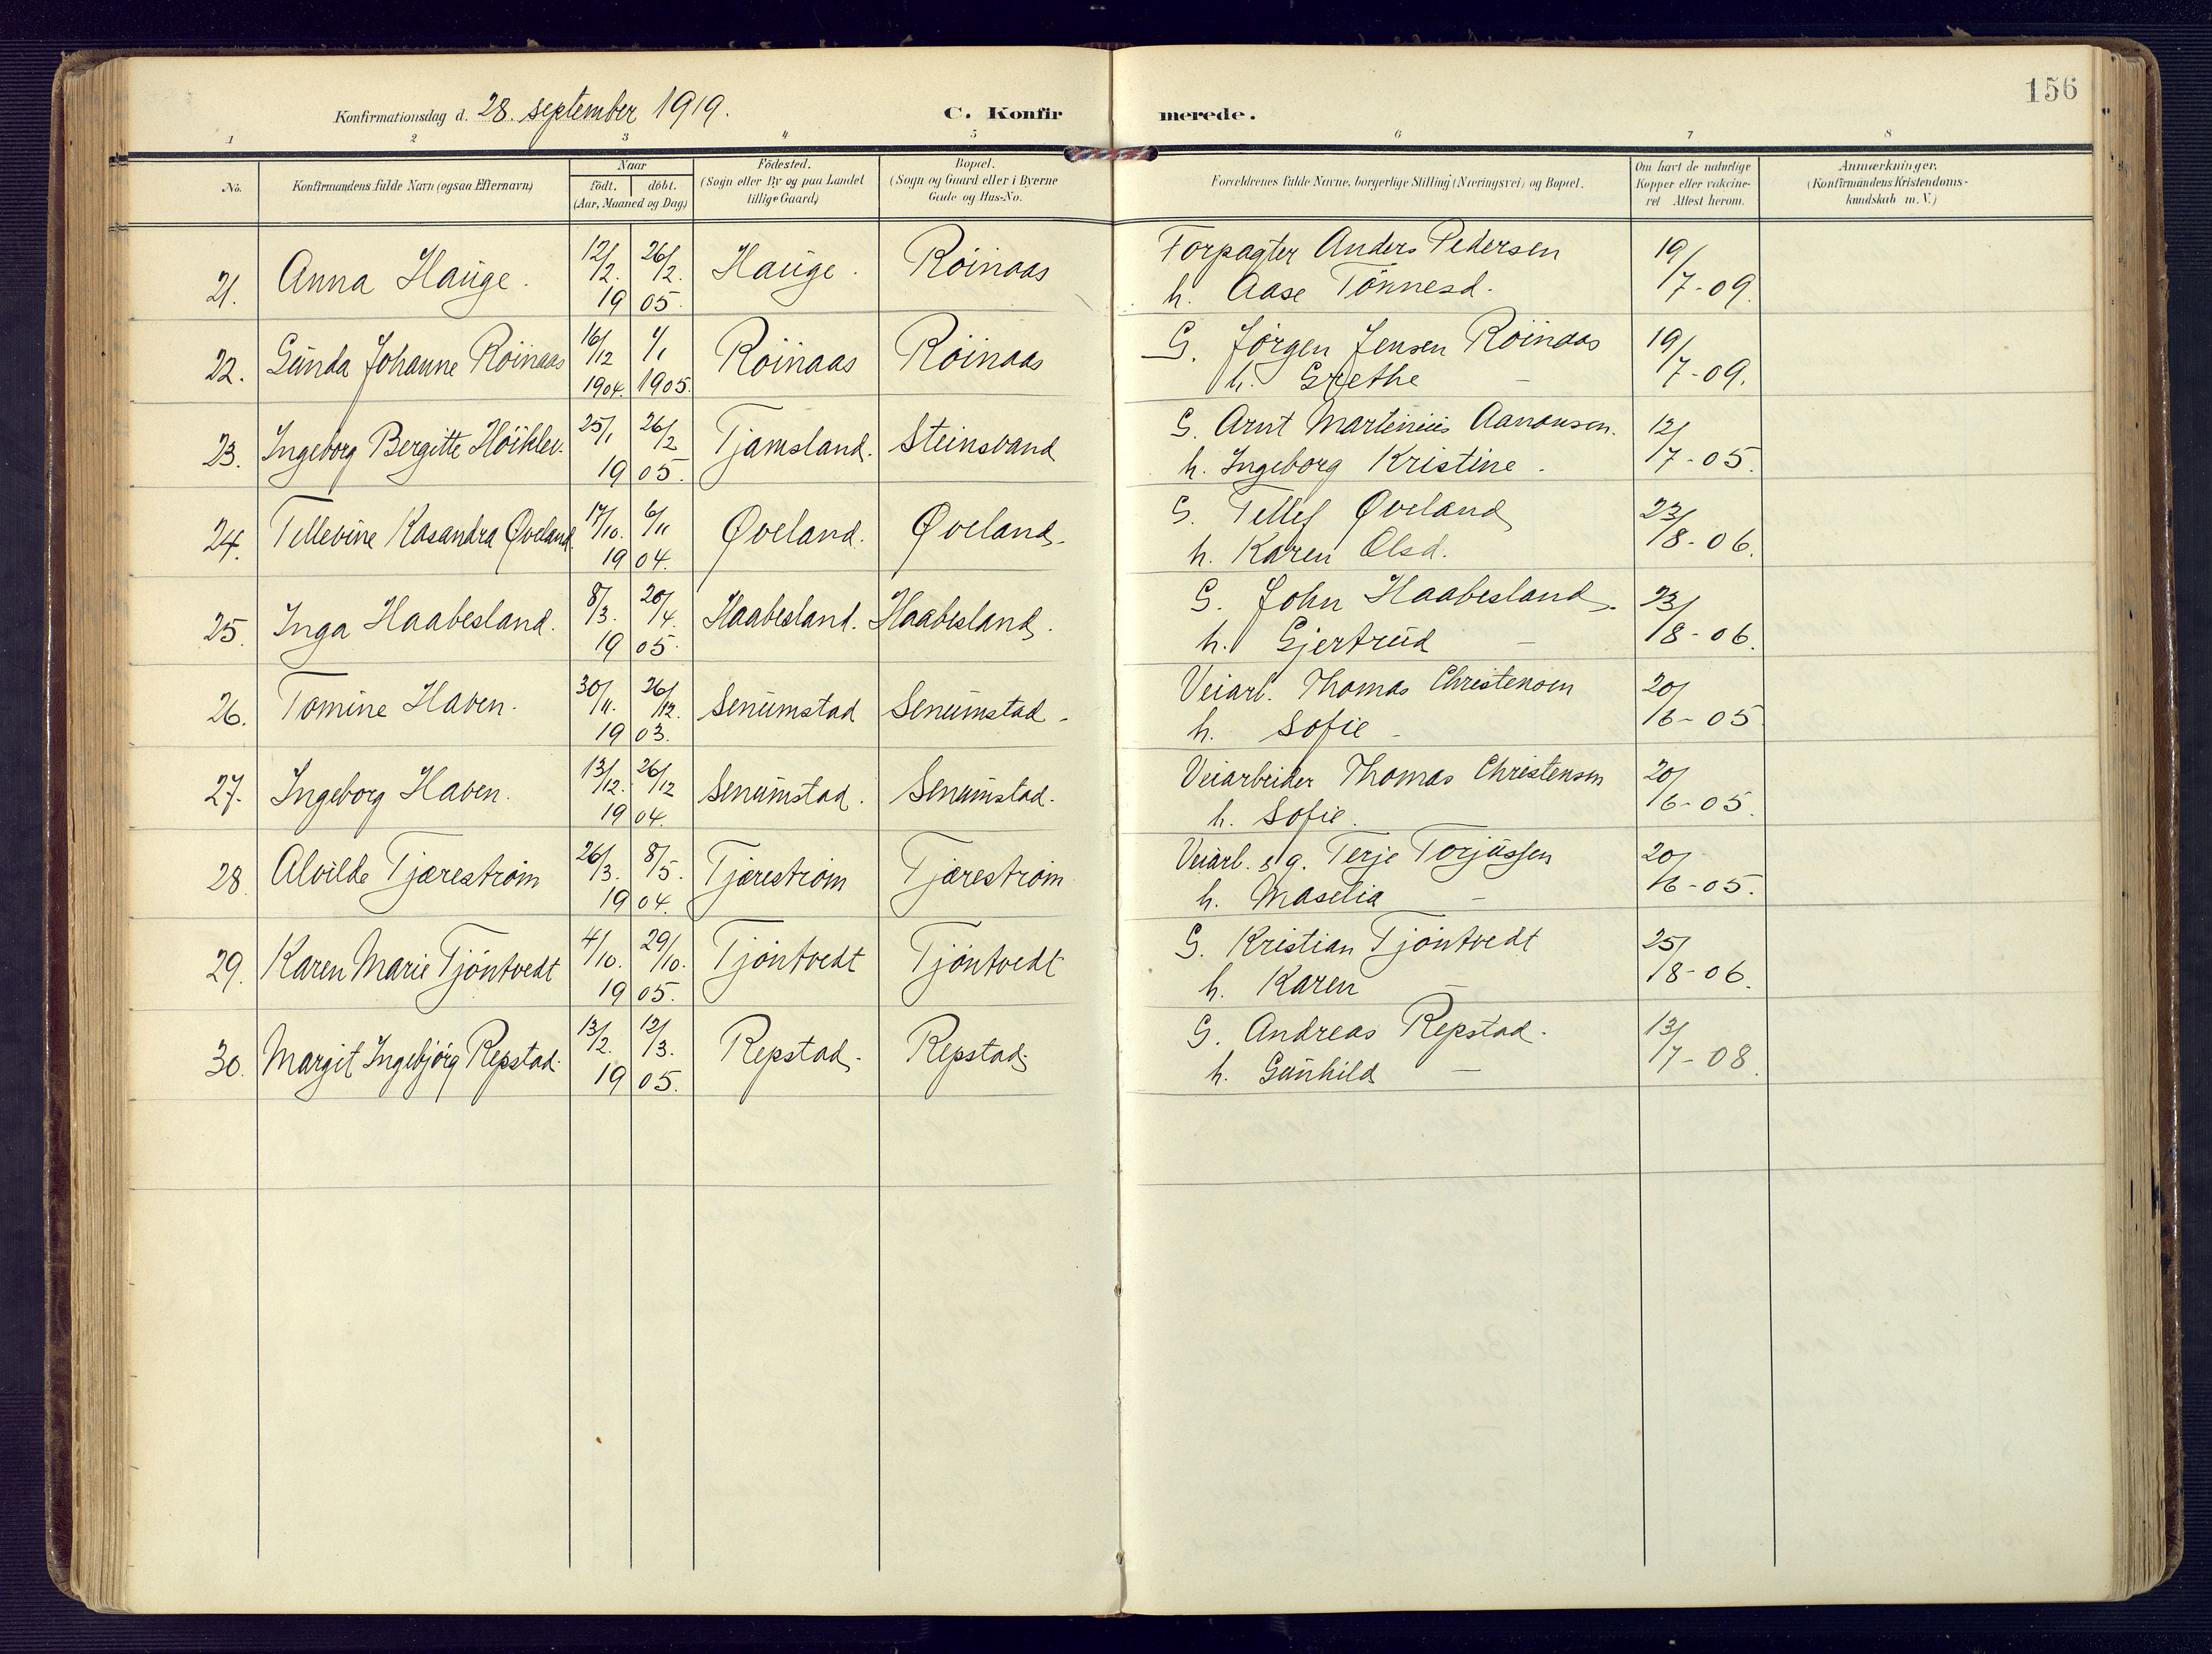 156
Konfirmationsdag d. 28. september 1919. C. Konfirmerede.
1 2 3 4 5 6 7 8
No. Konfirmandens fulde Navn (ogsaa Efternavn) Naar født. døbt. (Aar, Maaned og Dag) Födested. (Sogn eller By og paa Landet tillige Gaard) Bopæl. (Sogn og Gaard eller i Byerne Gade og Hus-No. Forældrenes fulde Navne, borgerlige Stilling (Næringsvei) og Bopæl. Om havt de naturlige Kopper eller vakcineret Attest herom. Anmærkninger. (Konfirmandens Kristendomskundskab m. V.)
21. Anna Hauge. 12/2. 26/2. 1905. Hauge. Röinaas Forpagter Anders Pedersen 19/7-09.
h. Aase Tönnesd.
22. Gunda Johanne Röinaas 16/12 1904. 1/1 1905. Röinaas Röinaas G. Jörgen Jensen Röinaas 19/7-09.
h. Grethe –
23. Ingeborg Bergitte 25/1 26/2 1905. Tjamsland. Steinsvand G. Arnt Martinius Aanonsen. 12/7-05.
h. Ingeborg Kristine.
24. Tellevine Kasandra Øveland 17/10. 6/11 1904. Øveland. Øveland. G. Tellef Øveland 23/8-06.
h. Karen Olsd.
25. Inga Haabesland. 8/3. 20/4. 1905. Haabesland. Haabesland. G. John Haabesland. 23/8-06.
h. Gjertrud –
26. Tomine Haven. 30/11. 26/12. 1903. Senumstad Senumstad. Veiarb. Thomas Christensen 20/6-05
h. Sofie –
27. Ingeborg Haven. 13/12. 26/12 1904. Senumstad. Senumstad. Veiarbeider Thomas Christensen 20/6-05.
h. Sofie.
28 Alvilde Tjæreström 26/3. 8/5. 1904. Tjæreström Tjæreström Veiarb. s g. Terje Torjussen 20/6-05.
h. Maselia –
29. Karen Marie Tjöntvedt 4/10. 29/10. 1905. Tjöntvedt Tjöntvedt G. Kristian Tjöntvedt 25/8-06.
h. Karen –
30. Margit Ingebjörg Repstad. 13/2. 12/3. 1905. Repstad. Repstad. G. Andreas Repstad. 13/7-08.
h. Gunhild –